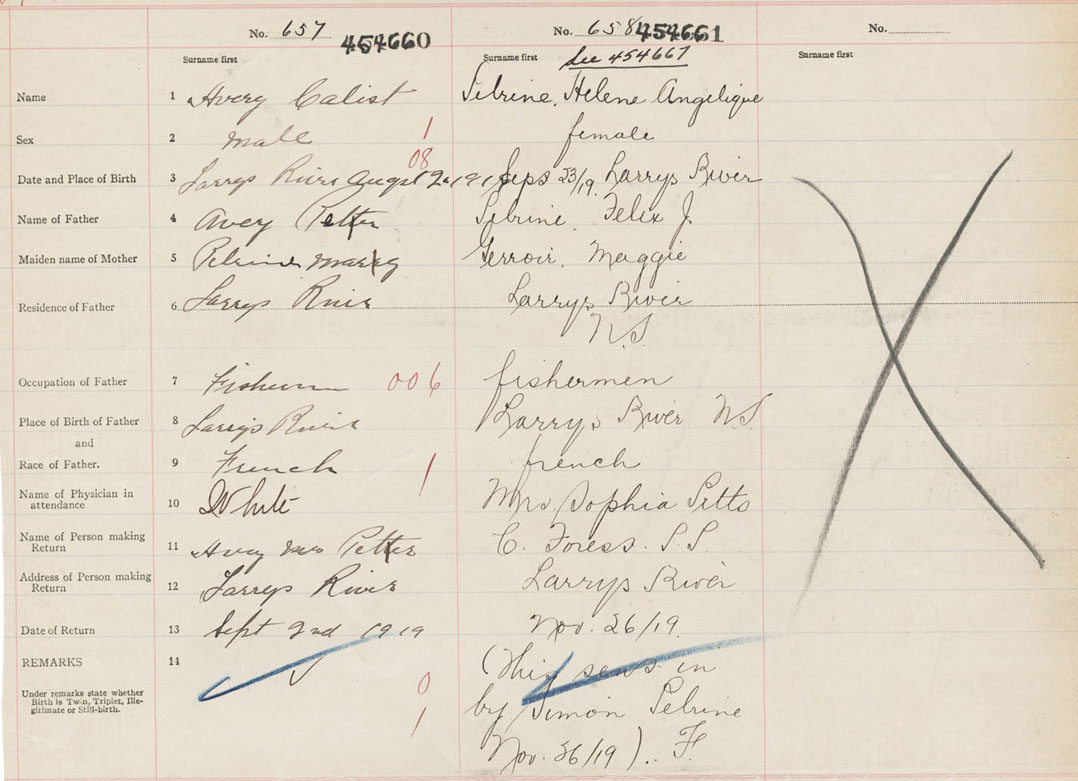 No. 657 454660 No. 658 454661 No.
See 454667
Surname first Surname first Surname first
Name 1 Avery Calist Pelrine, Helene Angelique
Sex 2 male 1 female
08
Date and Place of Birth 3 Larrys River 191 Seps 23/19. Larrys River
Name of Father 4 Avery Petter Pelrine, Felix J.
Maiden name of Mother 5 Pelrine Gerroir. Maggie
Residence of Father 6 Larrys River Larrys River
N.S
Occupation of Father 7 006 fishermen
Place of Birth of Father 8 Larrys River Larrys River N.S
and
Race of Father. 9 French 1 french
Name of Physician in
attendance 10 White Mrs Sophia Pitts
Name of Person making
Return 11 Mrs Petter C. P.P.
Address of Person making
Return 12 Larrys River Larrys River
Date of Return 13 Sept 2nd 1919 Nov. 26/19.
REMARKS 14 (This sens in
Under remarks state whether
Birth is Twin, Triplet, Ille-
gitimate or Still-birth.
0
1
by Simon Pelrine
Nov. 26/19). F